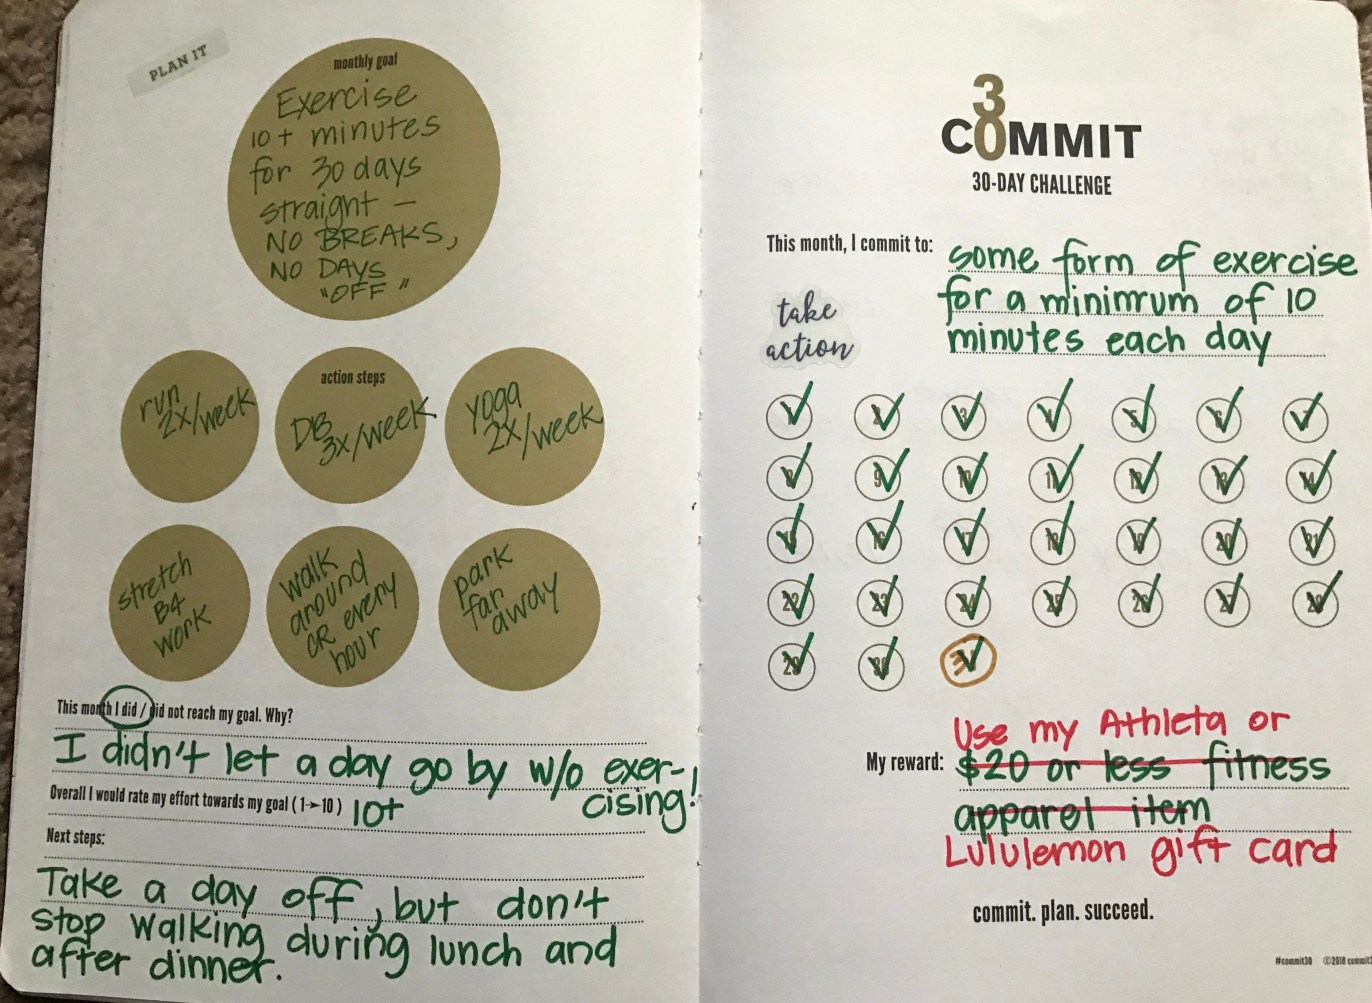 PLAN IT
monthly goal
Exercise
10+ minutes
for 30 days
straight —
NO BREAKS,
NO DAYS
"OFF"
action steps
run
2x/week
DB
3x/week
yoga
2x/week
stretch
B4
work
walk
around
CR every
hour
park
far
away
This month I did / did not reach my goal. Why?
I didn't let a day go by w/o exer-
cising!
Overall I would rate my effort towards my goal (1→10) 10+
Next steps:
Take a day off, but don't
stop walking during lunch and
after dinner.
3
COMMIT
30-DAY CHALLENGE
This month, I commit to: some form of exercise
for a minimum of 10
minutes each day
take
action
1 2 3 4 5 6 7
8 9 10 11 12 13 14
15 16 17 18 19 20 21
22 23 24 25 26 27 28
29 30 31
Use my Athleta or
My reward: $20 or less fitness
apparel item
Lululemon gift card
commit. plan. succeed.
#commit30 ©2018 commit3